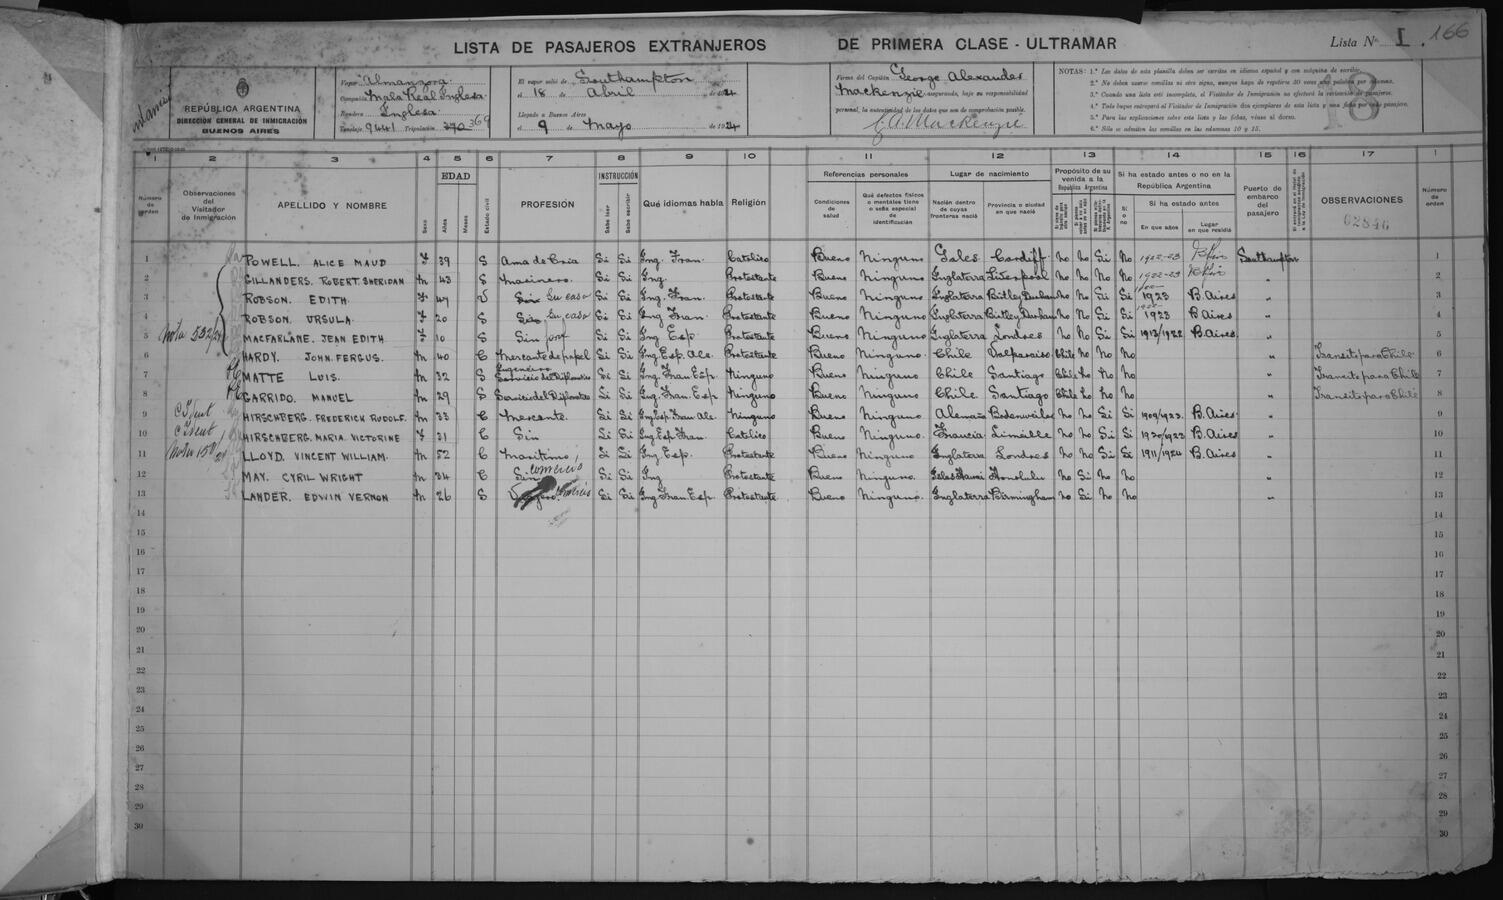 LISTA DE PASAJEROS EXTRANJEROS DE PRIMERA CLASE - ULTRAMAR
Lista Nº I. 166
REPÚBLICA ARGENTINA
DIRECCIÓN GENERAL DE INMIGRACIÓN
BUENOS AIRES
Vapor "Almanzora"
Compañía Mala Real Inglesa
Bandera Inglesa
Tonelaje 9441 Tripulación 370 369
El vapor salió de Southampton
el 18 de Abril de 1924
Llegado a Buenos Aires
el 9 de Mayo de 1924
Firma del Capitán George Alexander
Mackenzie asegurando, bajo su responsabilidad
personal, la autenticidad de los datos que son de comprobación posible.
G A Mackenzie
NOTAS: 1.ª Los datos de esta planilla deben ser escritos en idioma español y con máquina de escribir.
3.ª Cuando una lista esté incompleta, el Visitador de Inmigración no efectuará la revisación de pasajeros.
4.ª Todo buque entregará al Visitador de Inmigración dos ejemplares de esta lista y una ficha por cada pasajero.
5.ª Para las explicaciones sobre esta lista y las fichas, véase al dorso.
6.ª Sólo se admiten las comillas en las columnas 10 y 15.
18
1 2 3 4 5 6 7 8 9 10 11 12 13 14 15 16 17 1
Número de orden
Observaciones del Visitador de Inmigración
APELLIDO Y NOMBRE
Sexo
EDAD
Años
Meses
Estado civil
PROFESIÓN
INSTRUCCIÓN
Sabe leer
Sabe escribir
Qué idiomas habla
Religión
Referencias personales
Condiciones de salud
Qué defectos físicos o mentales tiene o seña especial de identificación
Lugar de nacimiento
Nación dentro de cuyas fronteras nació
Provincia o ciudad en que nació
Propósito de su venida a la República Argentina
Si ha estado antes o no en la República Argentina
Si o no
Si ha estado antes
En que años
Lugar en que residió
Puerto de embarco del pasajero
OBSERVACIONES
02846
Número de orden
1 POWELL. ALICE MAUD F 39 S Ama de Cria Si Si Ing. Fran. Catolico Bueno Ninguno Gales Cardiff No No Si No 1922-23 Southampton 1
2 GILLANDERS. ROBERT SHERIDAN M 43 S Marinero. Si Si Ing. Protestante Bueno Ninguno Inglaterra Liverpool No No No No 1922-23 " 2
3 ROBSON. EDITH F 47 V Su casa Si Si Ing. Fran. Protestante Bueno Ninguno Inglaterra No No Si Si 1923 B. Aires " 3
4 ROBSON. URSULA F 20 S Su casa Si Si Ing Fran. Protestante Bueno Ninguno Inglaterra No No Si Si 1923 B. Aires " 4
Nota 532/24 5 MACFARLANE. JEAN EDITH F 10 S Sin prof Si Si Ing Esp Protestante Bueno Ninguno Inglaterra Londres No No Si Si 1913/1922 B. Aires. " 5
6 HARDY. JOHN FERGUS. M 40 C Mercante de papel Si Si Ing. Esp. Ale. Protestante Bueno Ninguno. Chile Valparaiso Chile No No No " Transito para Chile 6
7 MATTE LUIS. M 32 S Ingeniero Servicio del Diplomatico Si Si Ing. Fran Esp. Ninguno Bueno Ninguno Chile Santiago Chile No No No " Transito para Chile 7
8 GARRIDO. MANUEL M 29 S Servicio del Diplomatico Si Si Ing. Fran. Esp Ninguno Bueno Ninguno Chile Santiago Chile No No No " Transito para Chile 8
C Ident 9 HIRSCHBERG. FREDERICK RUDOLF. M 33 C Mercante. Si Si Ing Esp Fran Ale. Ninguno Bueno Ninguno. Badenweiler No No Si Si 1909/1923. B. Aires. " 9
C Ident 10 HIRSCHBERG. MARIA. VICTORINE F 31 C Sin Si Si Ing. Esp. Fran. Catolico Bueno Ninguno. Francia No No Si Si 1920/1923 B. Aires " 10
11 LLOYD. VINCENT WILLIAM. M 52 C Maritimo Si Si Ing. Esp. Protestante Bueno Ninguno. Inglaterra Londres No No Si Si 1911/1924 B. Aires " 11
12 MAY. CYRIL WRIGHT M 34 C Comercio Si Si Ing Protestante Bueno Ninguno. Honolulu No Si No No " 12
13 LANDER. EDWIN VERNON M 26 S Si Si Ing Fran Esp. Protestante Bueno Ninguno. Inglaterra Birmingham No Si No No " 13
14 14
15 15
16 16
17 17
18 18
19 19
20 20
21 21
22 22
23 23
24 24
25 25
26 26
27 27
28 28
29 29
30 30